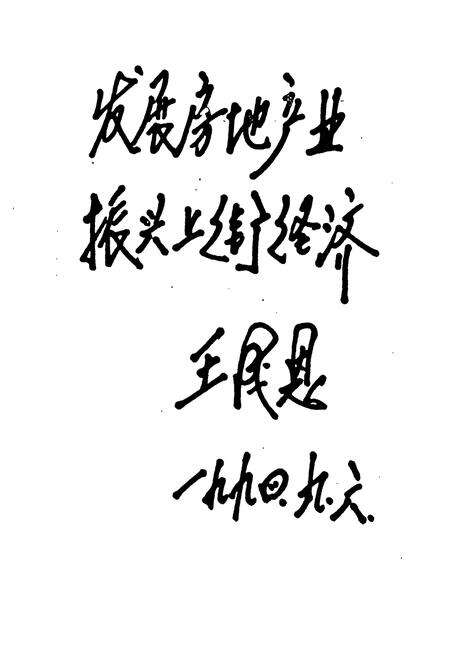 发展房地产业
振头上街经济
王民恩
一九九四.九.六.